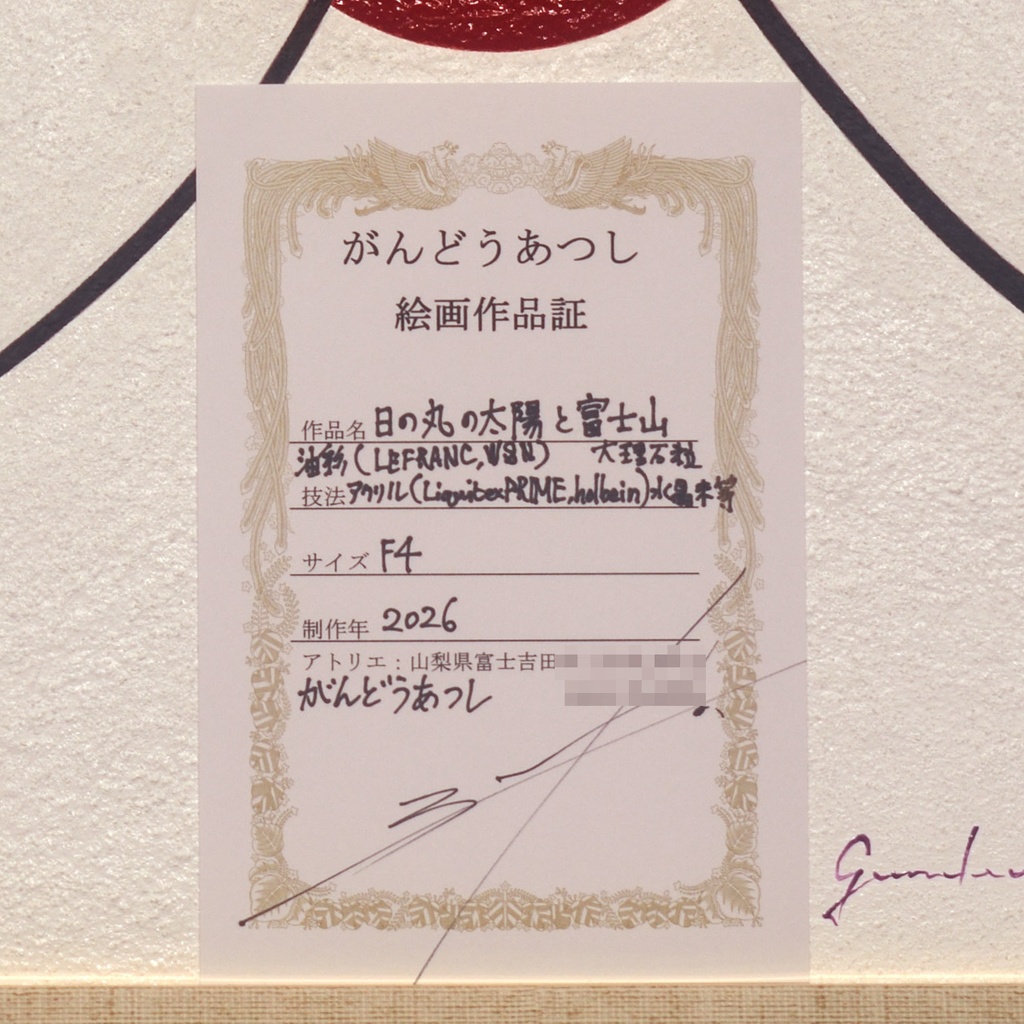 がんどうあつし
絵画作品証
作品名 日の丸の太陽と富士山
油彩(LEFRANC,W&N) 大理石粒
技法 アクリル(Liquitex PRIME,holbein)水晶末等
サイズ F4
制作年 2026
アトリエ:山梨県富士吉田
がんどうあつし